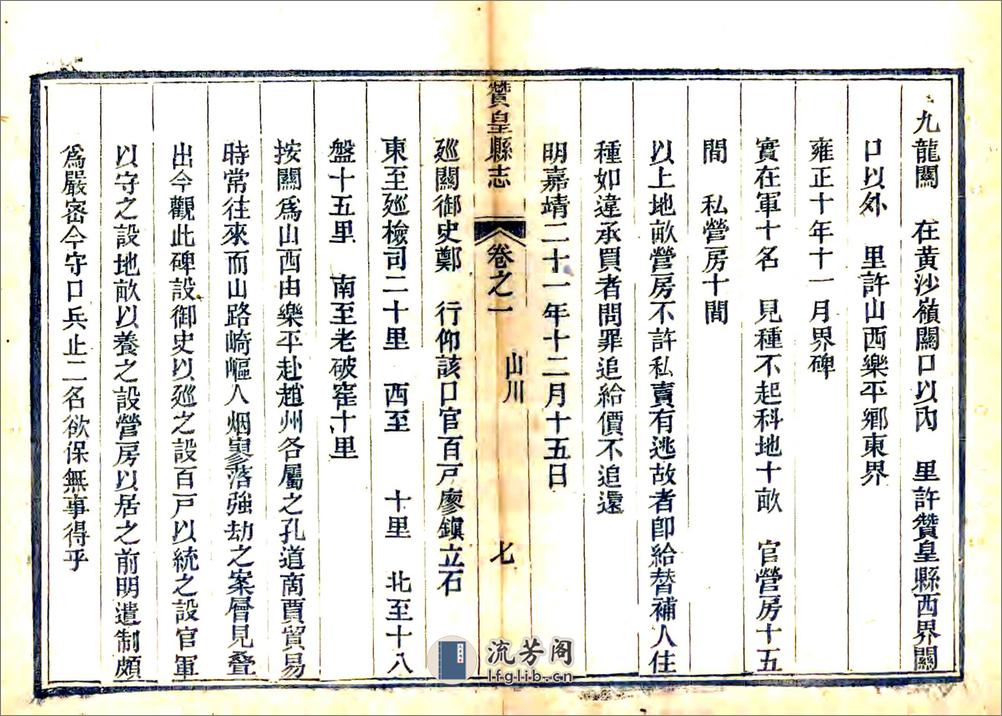 九龍關　在黄沙嶺關口以內　里許贊皇縣西界關
口以外　里許山西樂平鄉東界
雍正十年十一月界碑
實在軍十名　見種不起科地十畝　官營房十五
間　私營房十間
以上地畝營房不許私賣有逃故者卽給替補人住
種如違承買者問罪追給價不追還
明嘉靖二十一年十二月十五日
贊皇縣志
卷之一　山川　七
廵關御史鄭　行仰該口官百戸廖鎭立石
東至廵檢司二十里　西至　十里　北至十八
盤十五里　南至老破窰十里
按關爲山西由樂平赴趙州各屬之孔道商賈貿易
時常往來而山路崎嶇人烟寥落強劫之案層見疊
出今觀此碑設御史以廵之設百戸以統之設官軍
以守之設地畝以養之設營房以居之前明遺制頗
爲嚴密今守口兵止二名欲保無事得乎
流芳阁
lfglib.cn